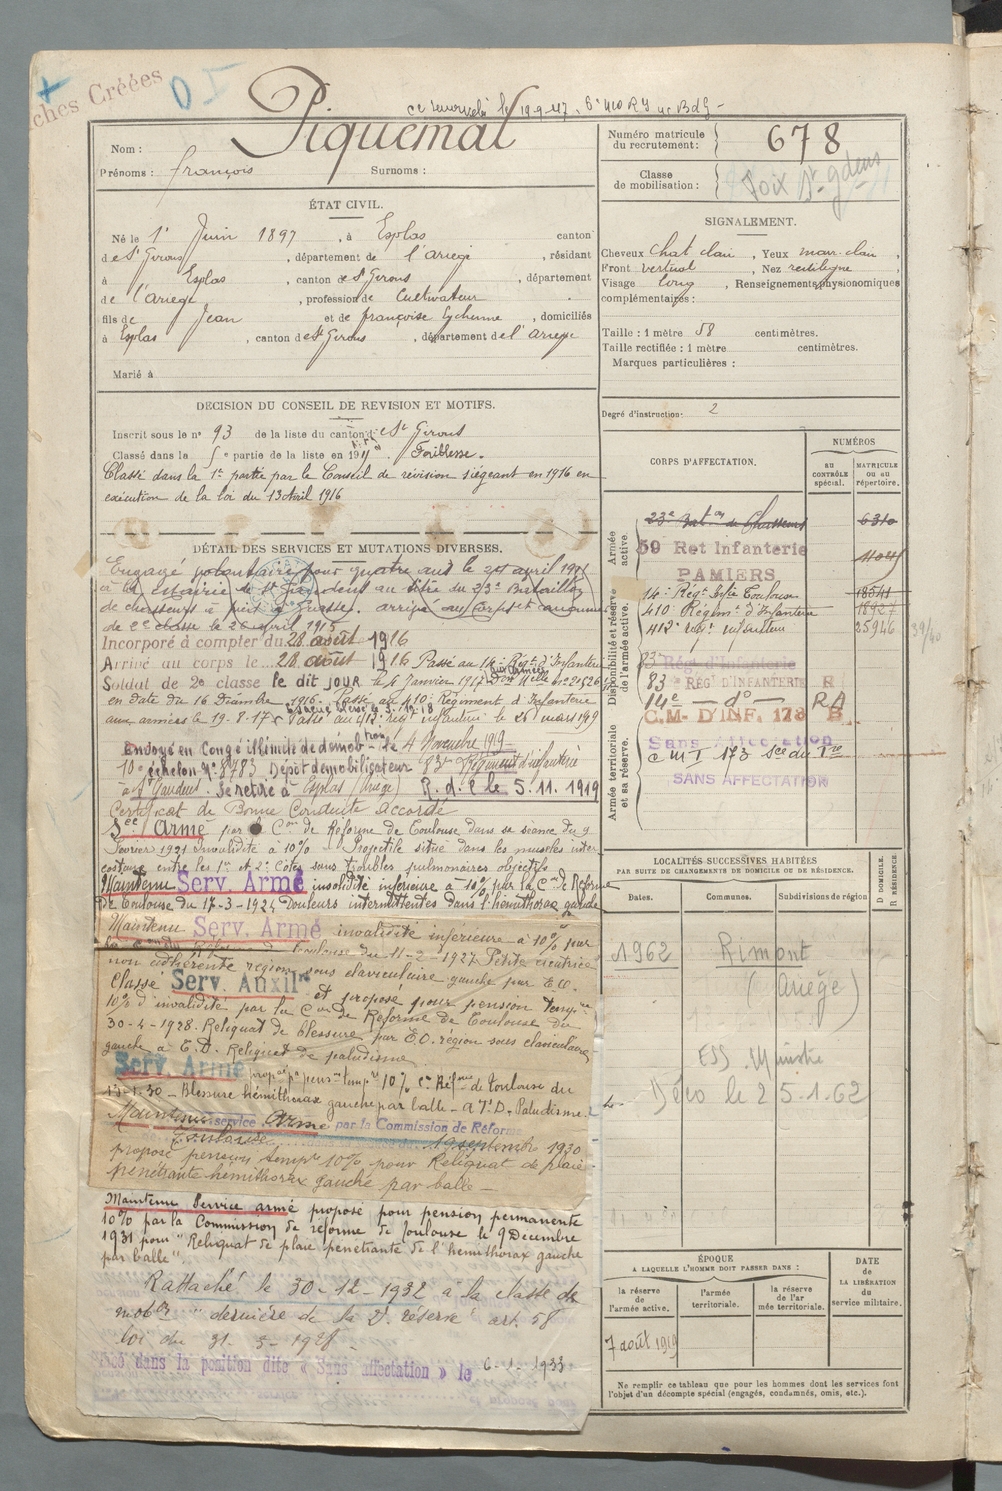 ches Créées
Piquemal
Nom :
Prénoms : françois Surnoms :
Numéro matricule du recrutement : 678
Classe de mobilisation :
Foix St gdens
ÉTAT CIVIL.
Né le 1r Juin 1897, à Esplas canton
de St Girons, département de l'Ariège, résidant
à Esplas, canton de St Girons, département
de l'Ariège, profession de Cultivateur
fils de Jean et de françoise, domiciliés
à Esplas, canton de St Girons, département de l'Ariège
Marié à
SIGNALEMENT.
Cheveux chat clair, Yeux mar. clair,
Front vertical, Nez rectiligne
Visage long, Renseignements physionomiques
complémentaires :
Taille : 1 mètre 58 centimètres.
Taille rectifiée : 1 mètre centimètres.
Marques particulières :
Degré d'instruction : 2
DÉCISION DU CONSEIL DE REVISION ET MOTIFS.
Inscrit sous le n° 93 de la liste du canton de St Girons
Classé dans la 5e partie de la liste en 191 Faiblesse.
Classé dans la 1re partie par le Conseil de révision siégeant en 1916 en
exécution de la loi du 13 Avril 1916
DÉTAIL DES SERVICES ET MUTATIONS DIVERSES.
Engagé volontaire pour quatre ans le 24 april 191
à la Mairie de St Gaudens au titre du 23e Bataillon
de chasseurs à pied à Grasse. arrivé au corps et
de 2e classe le 26 avril 1915
Incorporé à compter du 28 août 1916
Arrivé au corps le 28 août 1916 Passé au 14e Régt d'Infanterie
Soldat de 2e classe le dit jour le 6 Janvier 1917
en date du 16 Décembre 1916. Passé au 410e Régiment d'Infanterie
aux armées le 19-8-17. Passé au 412e régt infanterie le 26 mars 1919
Envoyé en Congé illimité de démob le 4 Novembre 1919
10e échelon N° 8783 Dépôt démobilisateur 83e Régiment d'infanterie
à St Gaudens. Se retire à Esplas (Ariège) R. d. P. le 5.11.1919
Certificat de Bonne Conduite accordé
See Armé par la Con de Réforme de Toulouse dans sa séance du 9
Février 1921 invalidité à 10% Projectile situé dans les muscles inter
costaux entre les 1re et 2e Côtes sans troubles pulmonaires objectifs
Maintenu Serv. Armé invalidité inférieure à 10% par la Con de Réforme
de Toulouse du 17-3-1924 Douleurs intermittentes dans l'hémithorax gauche
Maintenu Serv. Armé invalidité inférieure à 10% par
la Con de Réforme de Toulouse du 11-2-1927 Petite cicatrice
non adhérente région sous claviculaire gauche par E.O.
Classé Serv. Auxilre et proposé pour pension tempre
10% d'invalidité par la Con de Réforme de Toulouse du
30-4-1928. Reliquat de blessure par E.O. région sous claviculaire
gauche à E.D. Reliquat de paludisme
Serv. Armé prop pr pens temp re 10% Con Réfme de Toulouse du
13-1-30 - Blessure hémithorax gauche par balle - A T.D. Paludisme.
Maintenu service Armé par la Commission de Réforme
Toulouse 19 septembre 1930
proposé pension tempre 10% pour Reliquat de plaie
pénétrante hémithorax gauche par balle -
Maintenu Service armé proposé pour pension permanente
10% par la Commission de réforme de Toulouse le 9 Décembre
1931 pour "Reliquat de plaie pénétrante de l'hémithorax gauche
par balle"
Rattaché le 30-12-1932 à la classe de
mobon " dernière de la 2e réserve art. 58
loi du 31-3-1928
dans la position dite « Sans affectation » le 6-1-1933
CORPS D'AFFECTATION.
NUMÉROS
AU CONTRÔLE spécial.
MATRICULE OU AU répertoire.
Armée active.
Disponibilité et réserve de l'armée active.
Armée territoriale et sa réserve.
23e Baton de Chasseurs 6310
59 Ret Infanterie
PAMIERS
14e Régt Infie Toulouse
410 Régimt d'Infanterie
412e régt infanterie 25946
83e Rég d'Infanterie
83e RÉGt D'INFANTERIE R
14e — do — RA
C.M. D'INF. 178 B
Sans affectation
SANS AFFECTATION
LOCALITÉS SUCCESSIVES HABITÉES
PAR SUITE DE CHANGEMENTS DE DOMICILE OU DE RÉSIDENCE.
Dates. Communes. Subdivisions de région
D DOMICILE. R RÉSIDENCE
1962 Rimont
(Ariège)
Déco le 25.1.62
ÉPOQUE
A LAQUELLE L'HOMME DOIT PASSER DANS :
la réserve de l'armée active.
l'armée territoriale.
la réserve de l'armée territoriale.
DATE de LA LIBÉRATION du service militaire.
7 août 1919
Ne remplir ce tableau que pour les hommes dont les services font
l'objet d'un décompte spécial (engagés, condamnés, omis, etc.).